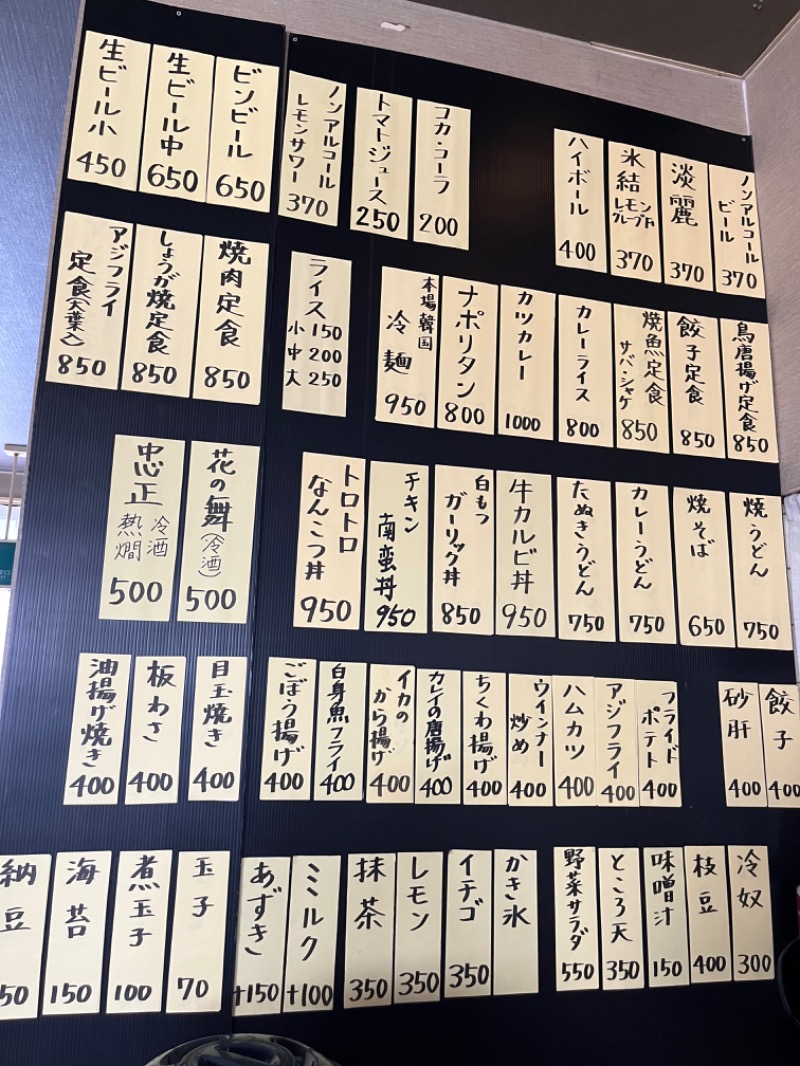 ノンアルコール
ビール
370
淡麗
370
氷結
レモン
グレープF
370
ハイボール
400
コカ・コーラ
200
トマトジュース
250
ノンアルコール
レモンサワー
370
ビンビール
650
生ビール中
650
生ビール小
450
鳥唐揚げ定食
850
餃子定食
850
焼魚定食
サバ・シャケ
850
カレーライス
800
カツカレー
1000
ナポリタン
800
本場韓国
冷麺
950
ライス
小 150
中 200
大 250
焼肉定食
850
しょうが焼定食
850
アジフライ
定食(大葉入)
850
焼うどん
750
焼そば
650
カレーうどん
750
たぬきうどん
750
牛カルビ丼
950
白もつ
ガーリック丼
850
チキン
南蛮丼
950
トロトロ
なんこつ丼
950
花の舞
(冷酒)
500
忠正
冷酒
熱燗
500
餃子
400
砂肝
400
フライド
ポテト
400
アジフライ
400
ハムカツ
400
ウインナー
炒め
400
ちくわ揚げ
400
カレイの唐揚げ
400
イカの
から揚げ
400
白身魚フライ
400
ごぼう揚げ
400
目玉焼き
400
板わさ
400
油揚げ焼き
400
冷奴
300
枝豆
400
味噌汁
150
ところ天
350
野菜サラダ
550
かき氷
イチゴ
350
レモン
350
抹茶
350
ミルク
+100
あずき
+150
玉子
70
煮玉子
100
海苔
150
納豆
50